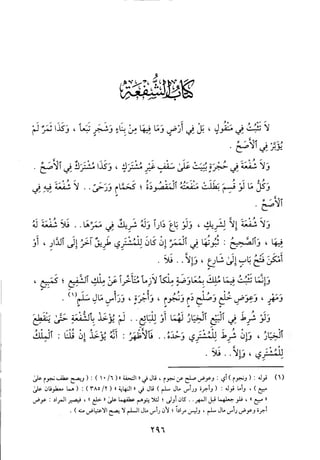 كتاب الشفعة
لا تثبت في منقول ، بل في أرض وما فيها من بناء وشجر تبعاً ، وكذا ثمر لم
يؤبر في الأصح .
ولا شفعة في حجرة بنيت على سقف غير مشترك ، وكذا مشترك في الأصح .
وكل ما لو قسم بطلت منفعته المقصودة ؛ كحمام ورحى . . لا شفعة فيه في
الأصح .
ولا شفعة إلا لشريك ، ولو باع داراً وله شريك في ممرها . . فلا شفعة له
فيها ، والصحيح : ثبوتها في الممر إن كان للمشتري طريق آخر إلى الدار ، أو
أمكن فتح باب إلى شارع ، وإلا . . فلا .
وإنما تثبت فيما ملك بمعاوضة ملكاً لازماً متأخراً عن ملك الشفيع ؛ كمبيع ،
ومهر ، وعوض خلع وصلح دم ونجوم ، وأجرة ، ورأس مال سلم(١) .
ولو شرط في البيع الخيار لهما أو للبائع . . لم يؤخذ بالشفعة حتى ينقطع
الخيار ، وإن شرط للمشتري وحده . . فالأظهر : أنه يؤخذ إن قلنا : الملك
للمشتري ، وإلا . . فلا .
(١) قوله : ( ونجوم ) أي : وعوض صلح عن نجوم ، قال في « التحفة » ( ٦/ ١٠ ) : ( ويصح عطف نجوم على
مبيع ) ، وأما قوله : ( وأجرة ورأس مال سلم ) قال في « النهاية » ( ٢/ ٣٨٥ ) : ( هما معطوفان على
« مبيع » ، فلو جعلهما قبل المهر . . كان أولى ؛ لئلا يتوهم عطفهما على « خلع » ، فيصير المراد : عوض
أجرة وعوض رأس مال سلم ، وليس مراداً ؛ لأن رأس مال السلم لا يصح الاعتياض عنه ) .
٢٩٦